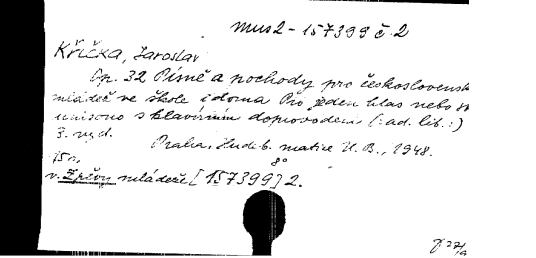 mus2-157399 č.2
Křička, Jaroslav
Op. 32 Písně a pochody pro československ
mládež ve škole i doma Pro jeden hlas nebo
unisono s klavírním doprovodem (: ad. lib. :)
3. vyd. Praha. Hudeb. matice U. B., 1948.
15 s. 8°
v. Zpěvy mládeže [157399] 2.